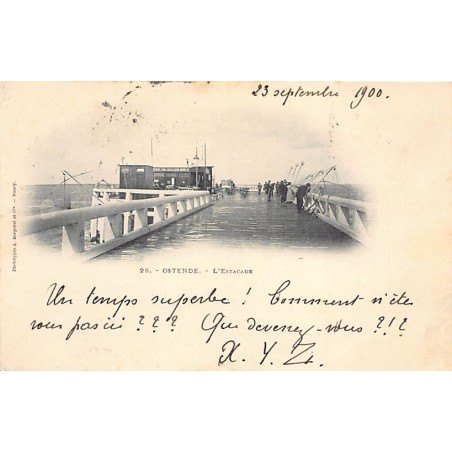 23 septembre 1900.
Phototypie A. Bergeret et Cie. - Nancy.
28. - OSTENDE. - L'ESTACADE
Un temps superbe ! Comment n'êtes
vous pas ici ??? Que devenez-vous ?!?
X. Y. Z.